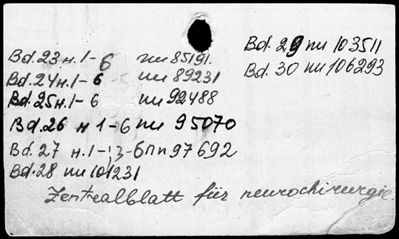 Bd. 23 н. 1-6 пи 85191.
Bd. 24 н. 1-6 пи 89231
Bd. 25 н. 1-6 пи 92488
Bd. 26 н 1-6 пи 95070
Bd. 27 н. 1-3-6 пи 97692
Bd. 28 пи 101231
Bd. 29 пи 103511
Bd. 30 пи 106293
Zentralblatt für neurochirurgie